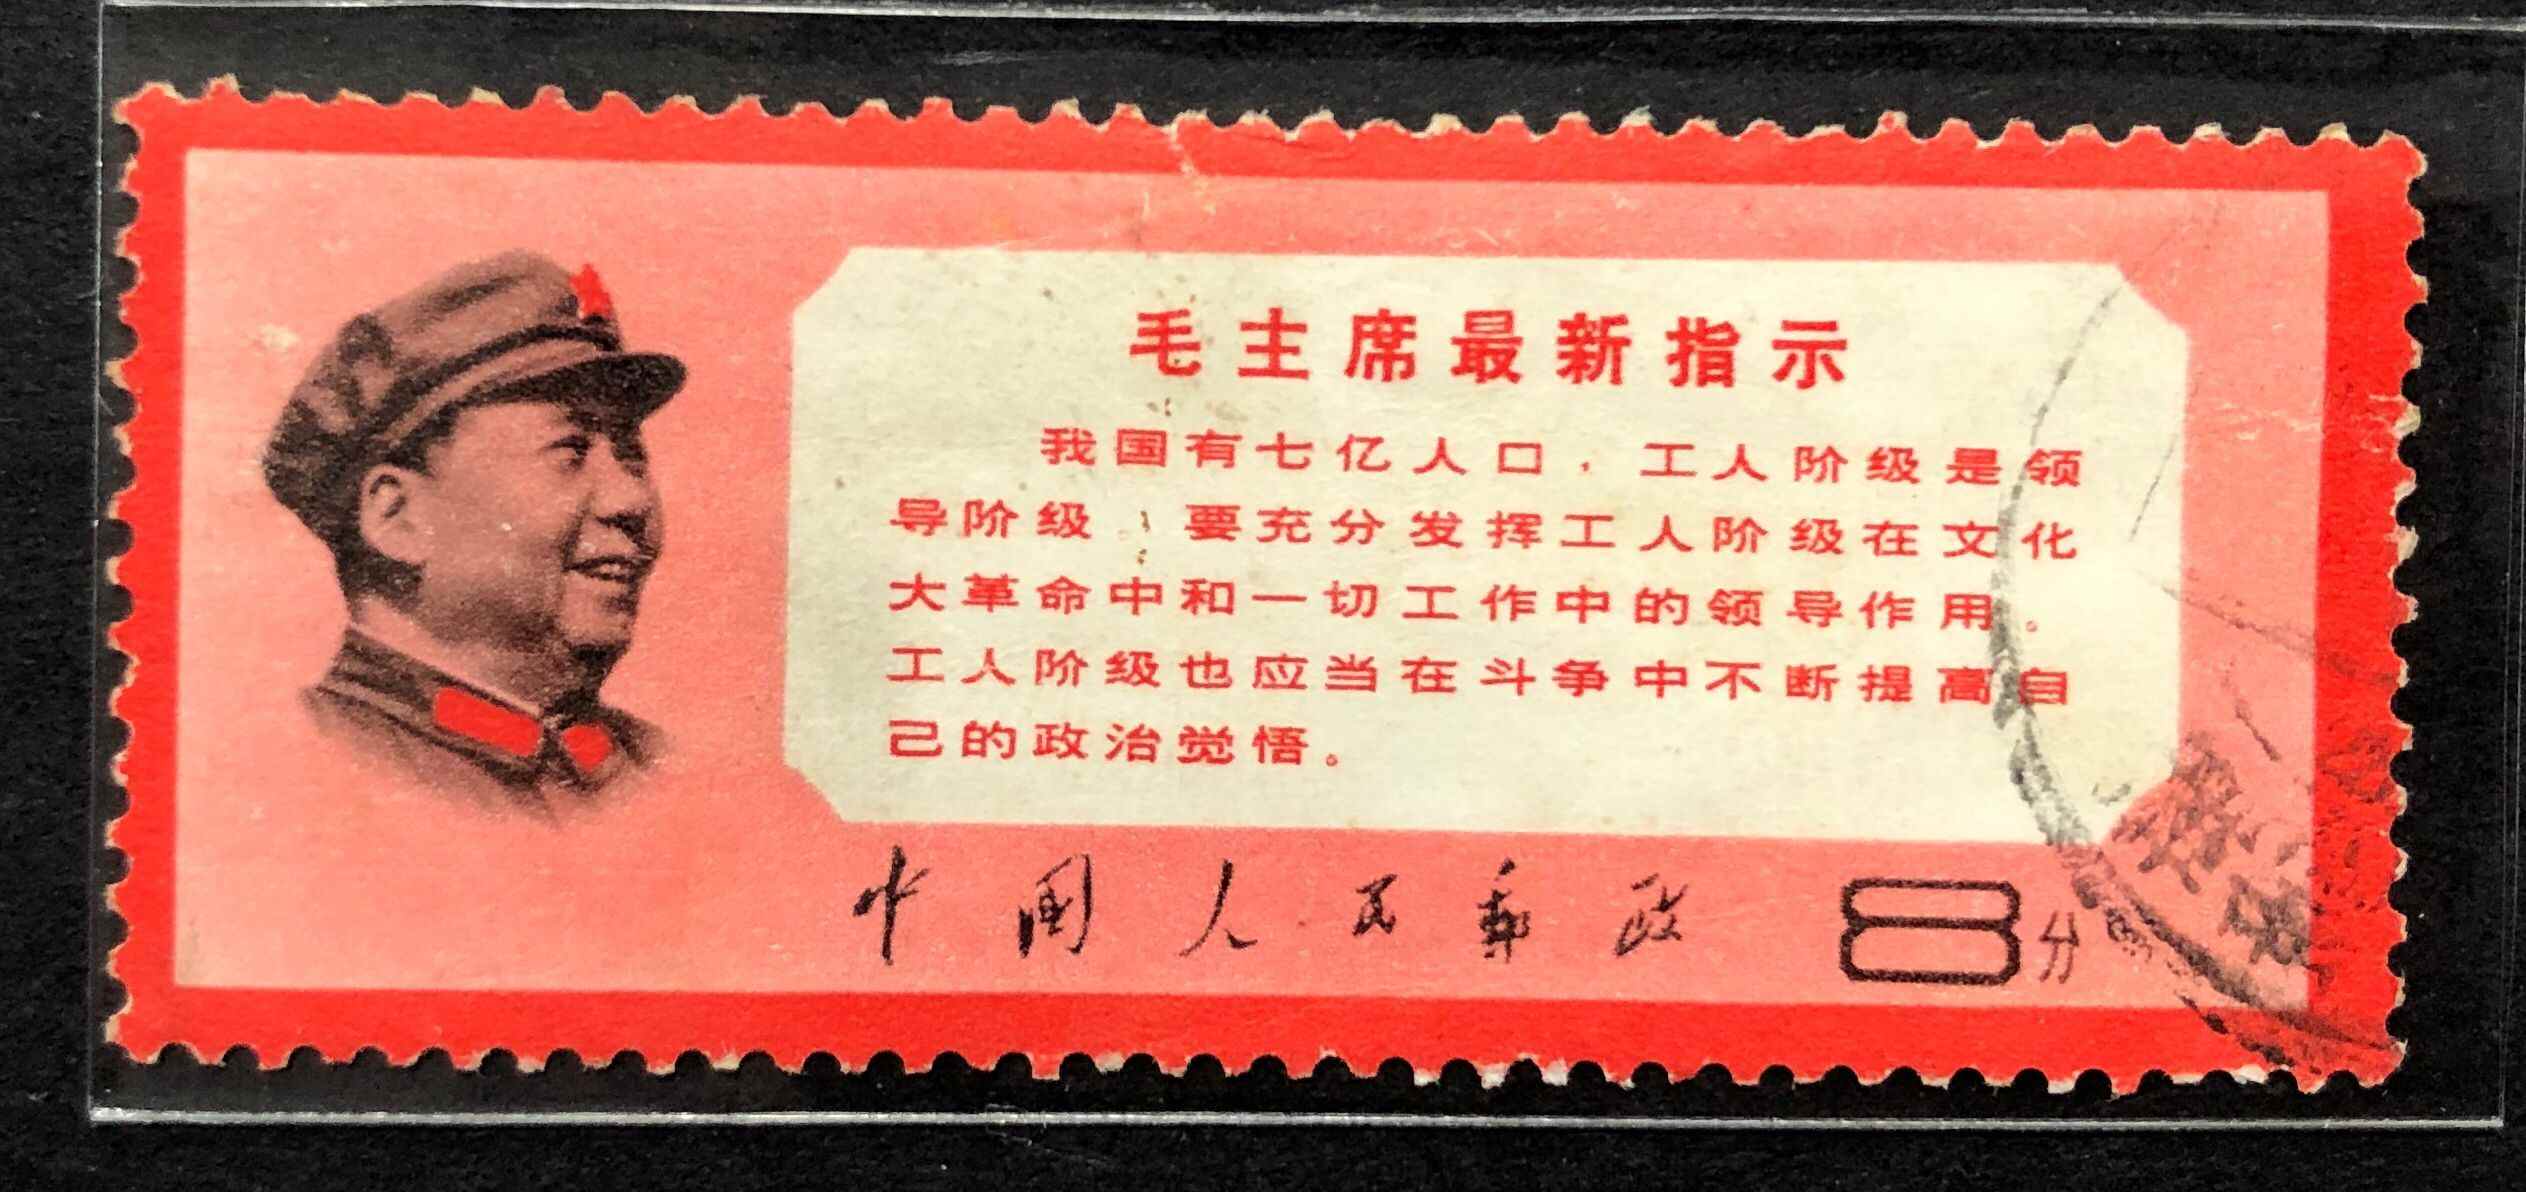 毛主席最新指示
我国有七亿人口，工人阶级是领
导阶级，要充分发挥工人阶级在文化
大革命中和一切工作中的领导作用。
工人阶级也应当在斗争中不断提高自
己的政治觉悟。
中国人民邮政 8分